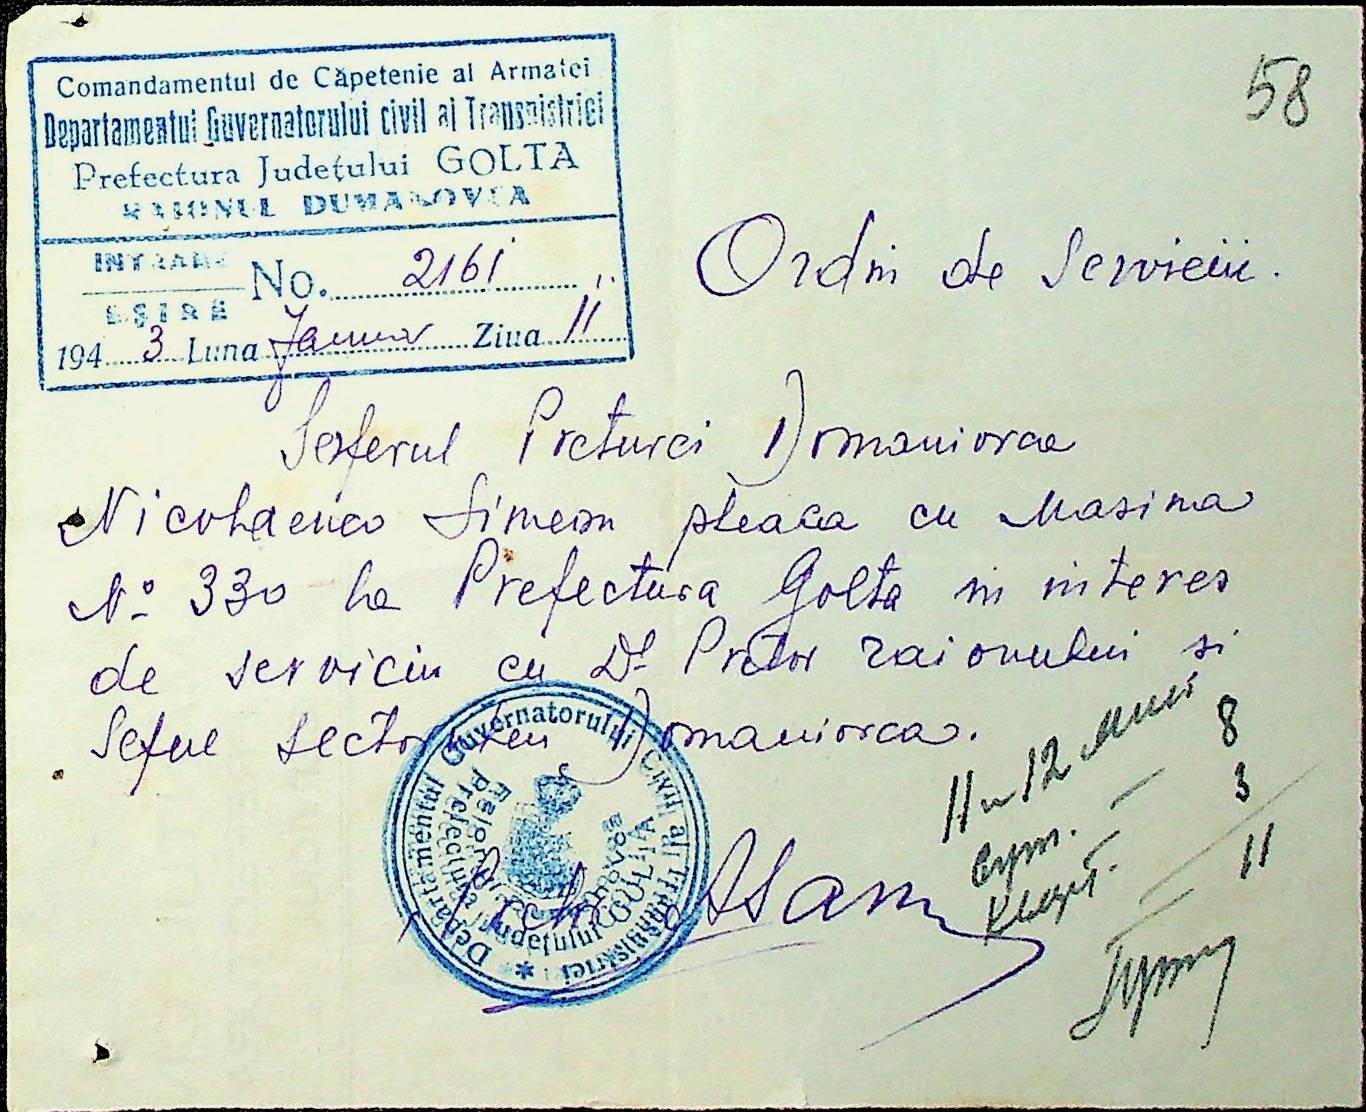 58
Comandamentul de Căpetenie al Armatei
Departamentul Guvernatorului civil al Transnistriei
Prefectura Județului GOLTA
RAIONUL DUMANOVCA
INTRARE
EȘIRE
No. 2161
1943 Luna Januar Ziua 11
Ordin de Serviciu.
Seferul Preturei Domaniovca
Nicolaenco Simeon pleaca cu Masina
No 330 la Prefectura Golta in interes
de serviciu cu Dl Pretor raionului si
Seful sectorului Domaniovca.
Departamentul Guvernatorului Civil al Transnistriei
Prefectura Județului GOLTA
11 12
8
сут. — 3
11